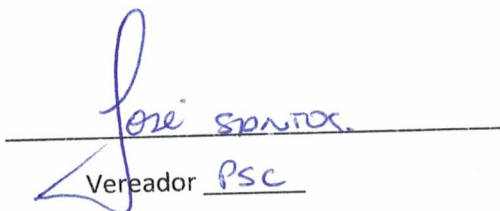 José SANTOS.
Vereador PSC